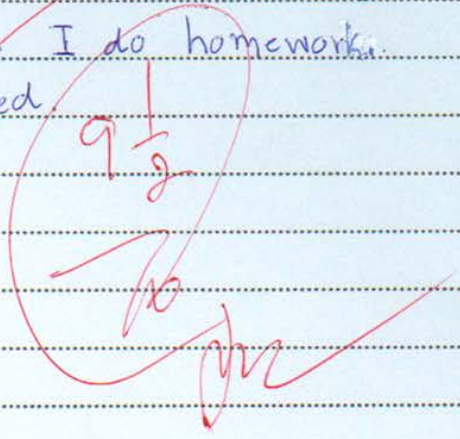 I do homework.
ed
9 1/2
10